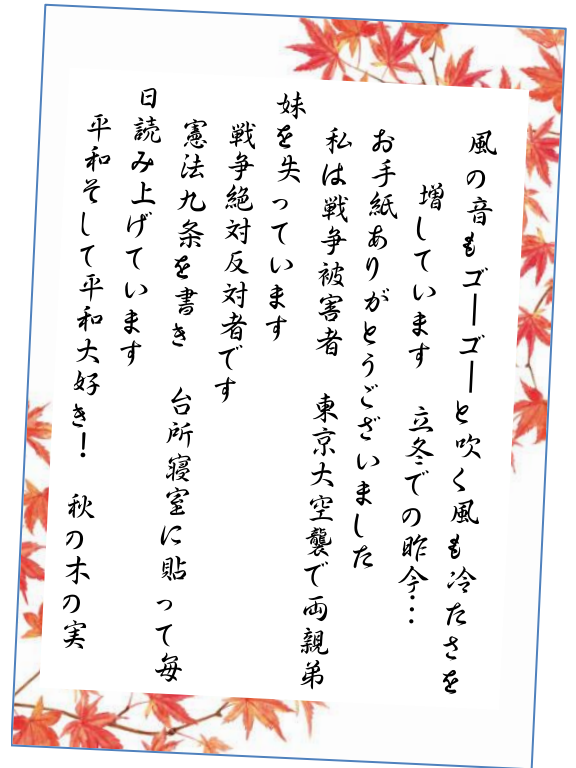 風の音もゴーゴーと吹く風も冷たさを
増しています　立冬での昨今…
お手紙ありがとうございました
私は戦争被害者　東京大空襲で両親弟
妹を失っています
戦争絶対反対者です
憲法九条を書き　台所寝室に貼って毎
日読み上げています
平和そして平和大好き！　秋の木の実